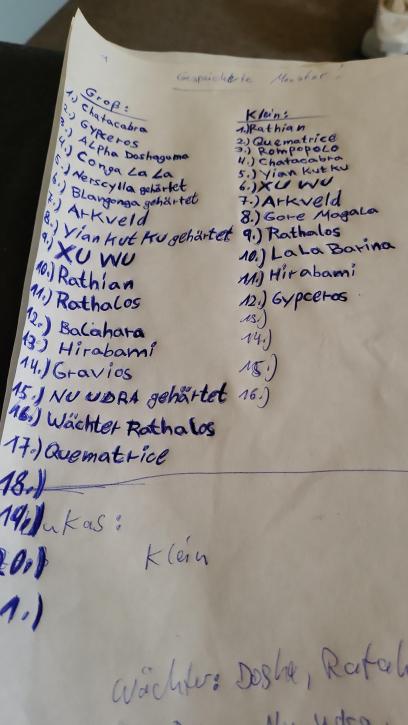 Gespeicherte Monster:
Groß:
1.) Chatacabra
2.) Gypceros
3.) Alpha Doshaguma
4.) Conga La La
5.) Nerscylla gehärtet
6.) Blangonga gehärtet
7.) Arkveld
8.) Yian Kut Ku gehärtet
9.) XU WU
10.) Rathian
11.) Rathalos
12.) Balahara
13.) Hirabami
14.) Gravios
15.) NU UDRA gehärtet
16.) Wächter Rathalos
17.) Quematrice
18.)
19.)
20.)
1.)
Klein:
1.) Rathian
2.) Quematrice
3.) Rompopolo
4.) Chatacabra
5.) Yian Kut Ku
6.) XU WU
7.) Arkveld
8.) Gore Magala
9.) Rathalos
10.) LaLa Barina
11.) Hirabami
12.) Gypceros
13.)
14.)
15.)
16.)
Lukas:
Klein
Wächter: Dosha,